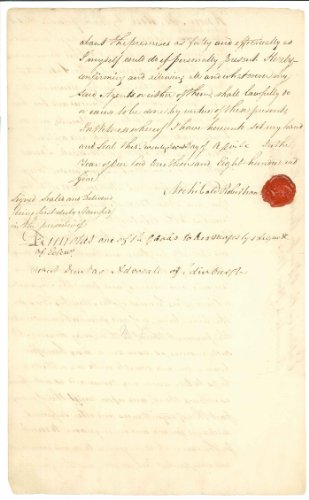 about the premises as fully and effectually as
I myself could do if personally present Hereby
confirming and allowing all and whatsoever my
said Agents or either of them shall lawfully do
or cause to be done by virtue of these presents
In Witness whereof I have hereunto set my hand
and Seal this day of April in the
Year of our Lord One thousand Eight hundred and
four
Archibald
Signed Sealed and Delivered
being first duly Stampt
in the presence of
that one of the
of
Advocate of Edinburgh